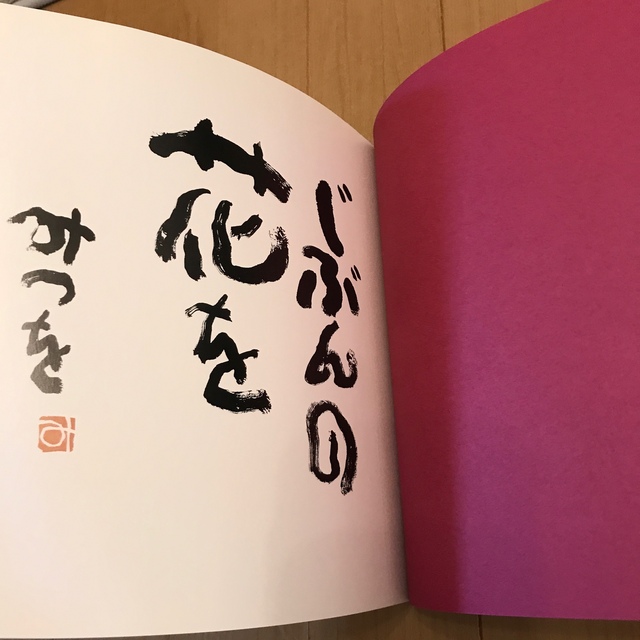 じぶんの
花を
みつを